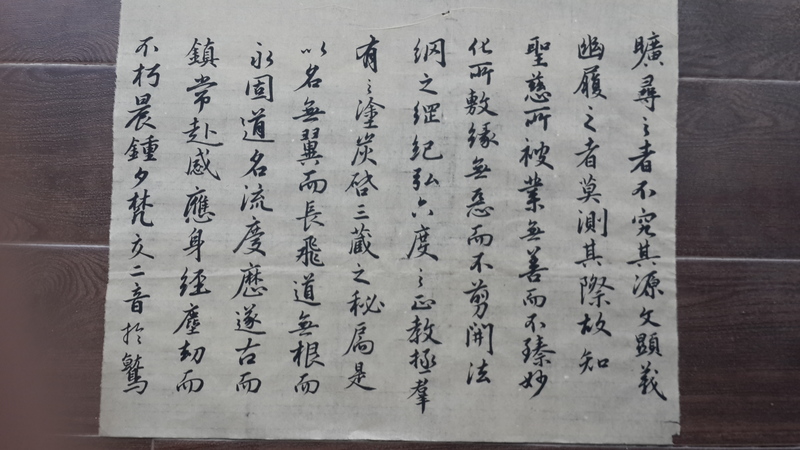 曠尋之者不究其源文顯義
幽履之者莫測其際故知
聖慈所被業無善而不臻妙
化所敷緣無惡而不剪開法
網之綱紀弘六度之正教拯羣
有之塗炭啓三藏之秘扃是
以名無翼而長飛道無根而
永固道名流慶歷遂古而
鎮常赴感應身經塵劫而
不朽晨鍾夕梵交二音於鷲